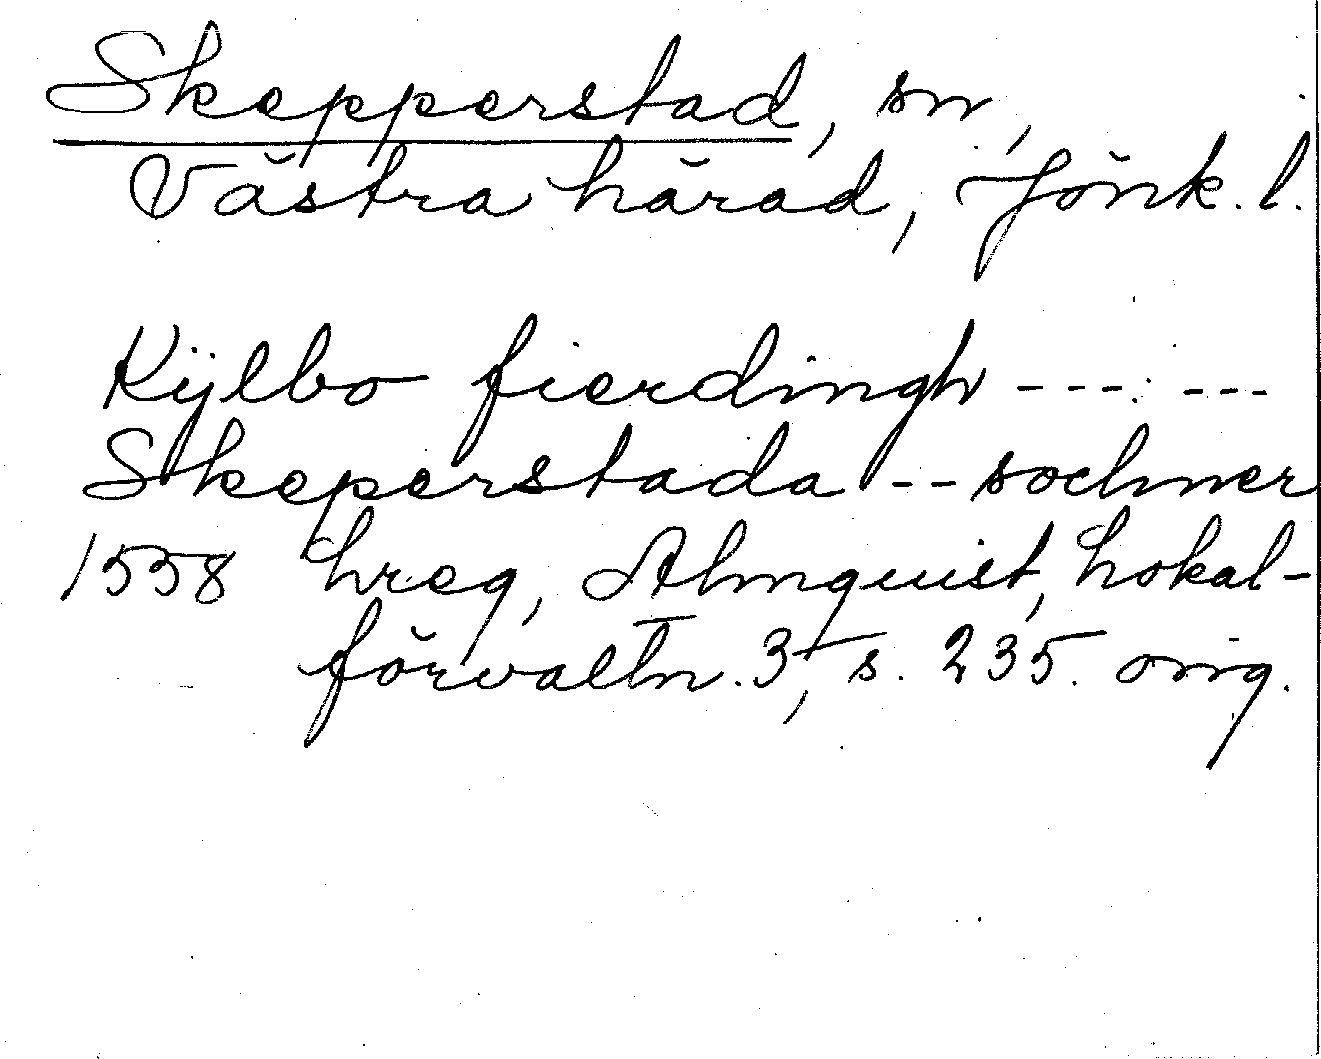 Skepperstad, sn,
Västra härad, Jönk. l.
Kÿlbo fierdingh --- ---
Skeperstada -- sochner
1558 hreg, Almquist, Lokal-
förvaltn. 3, s. 235. orig.